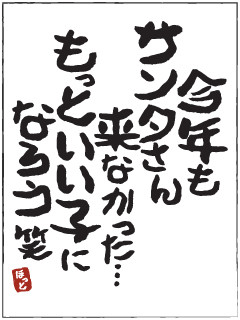 今年も
サンタさん
来なかった…
もっといい子に
なろう笑
ほっと